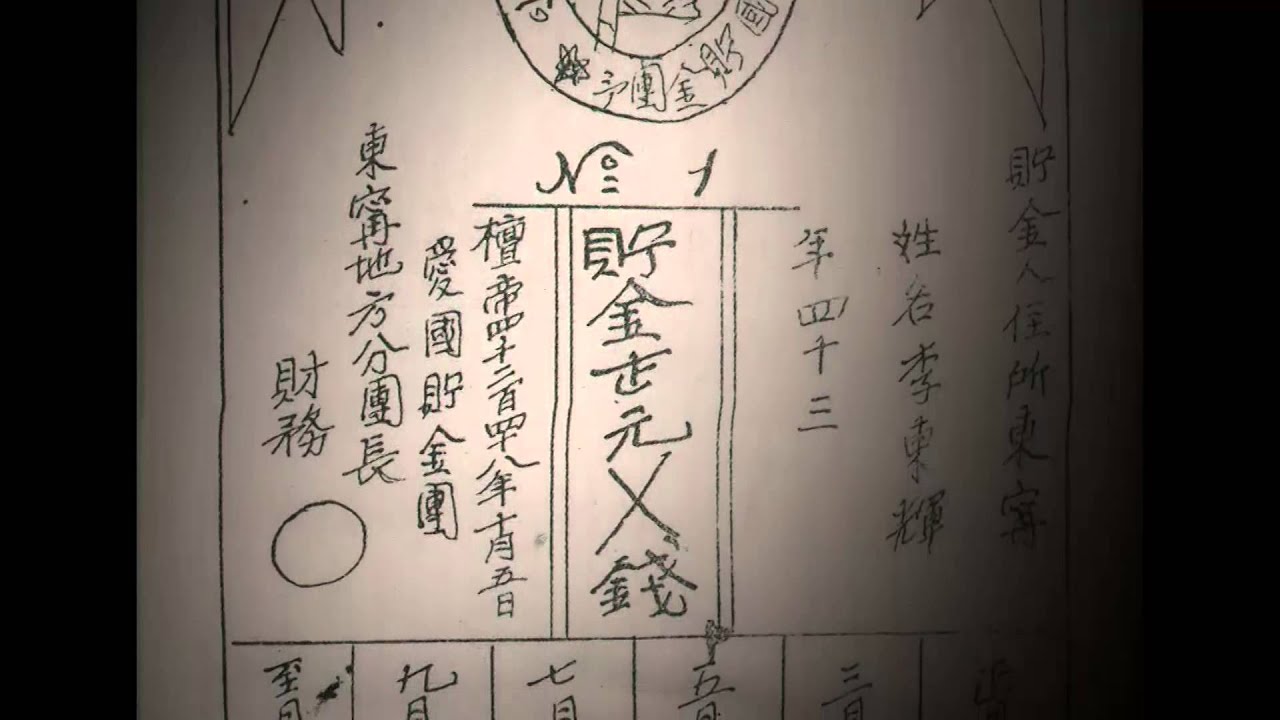 國貯金團
№ 1
貯金人住所東寗
姓名李東輝
年四十三
貯金壱元乂錢
檀帝四千二百四十八年十月五日
愛國貯金團
東寗地方分團長
財務
正月
三月
五月
七月
九月
至月